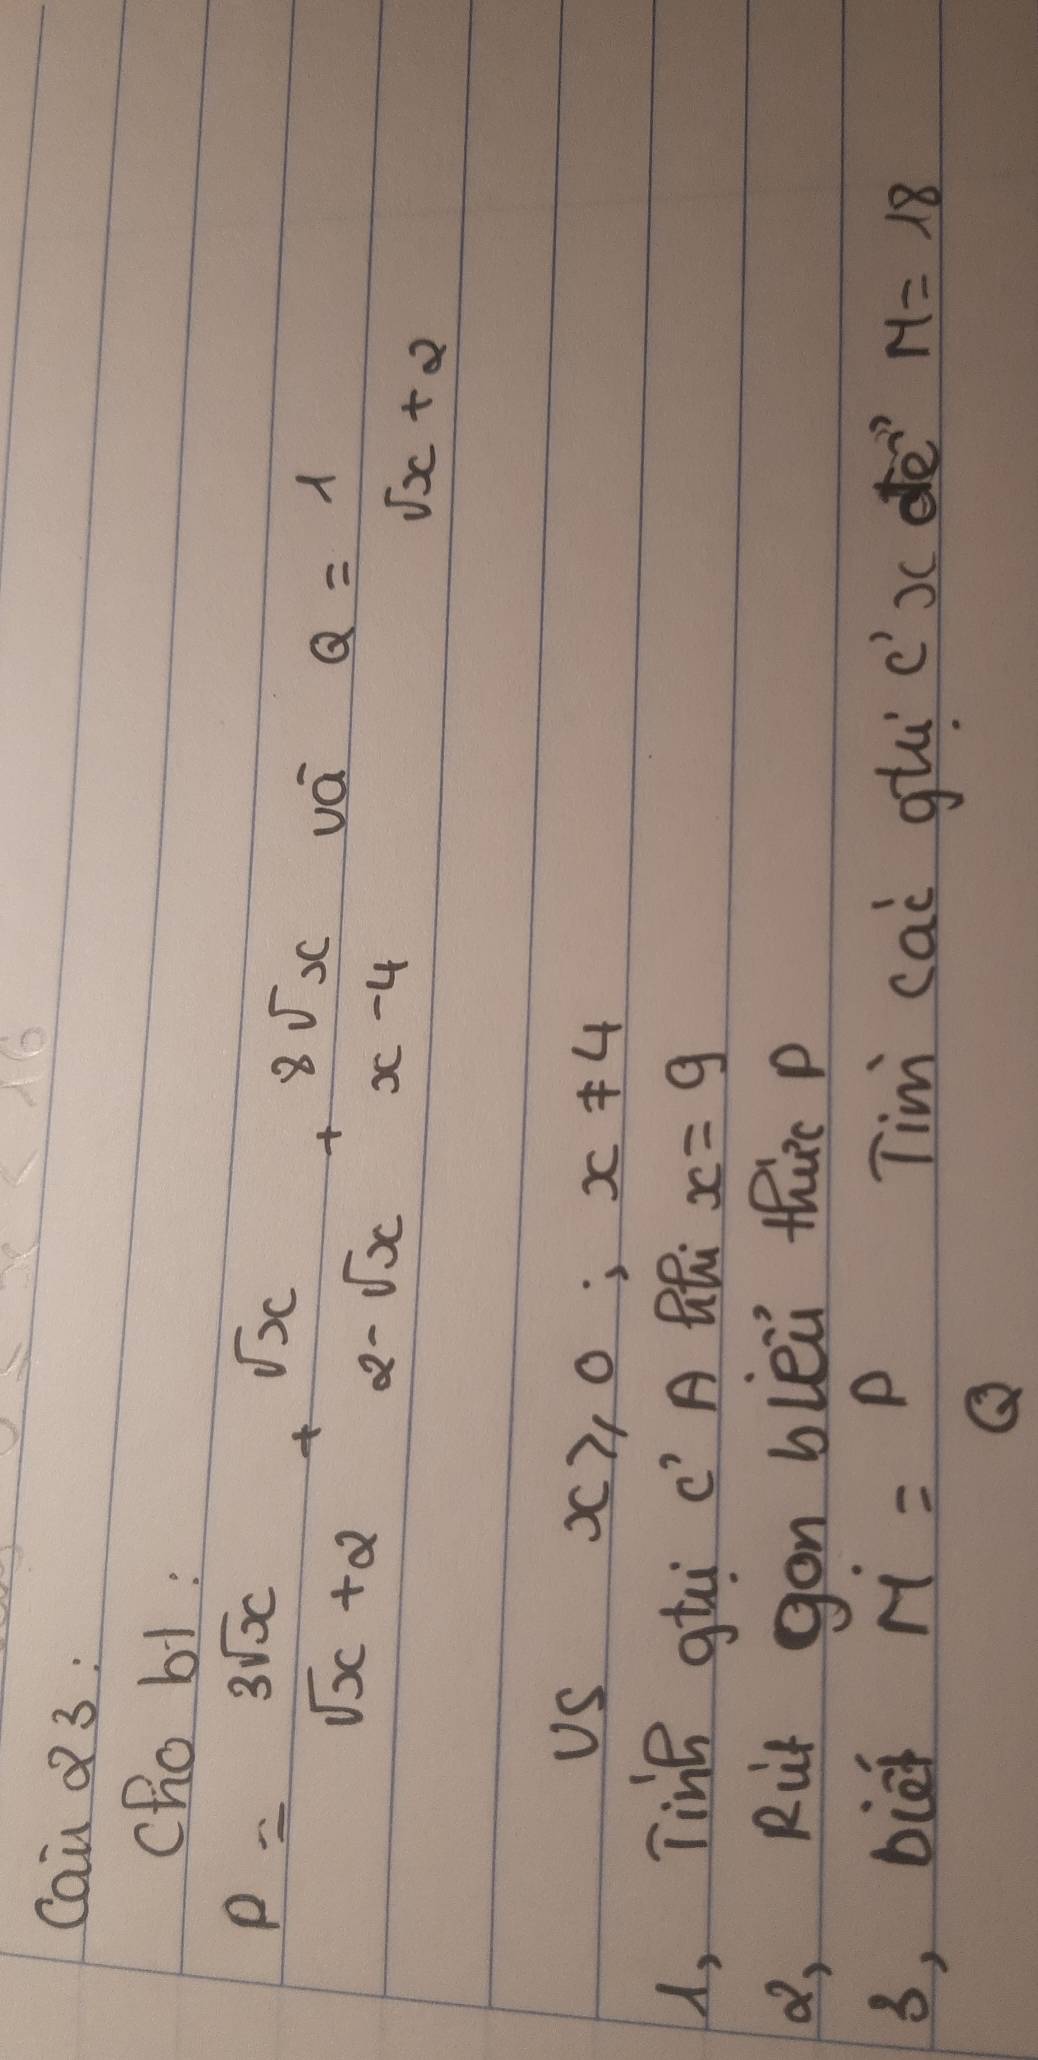 Câu 23:
Cho bt:
P = 3√x / √x + 2 + √x / 2 - √x + 8√x / x - 4 và Q = 1 / √x + 2
vs x ≥ 0 ; x ≠ 4
1, Tính gtrị c' A khi x = 9
2, Rút gọn biểu thức P
3, biết M = P / Q Tìm các gtrị c' x để M = 18